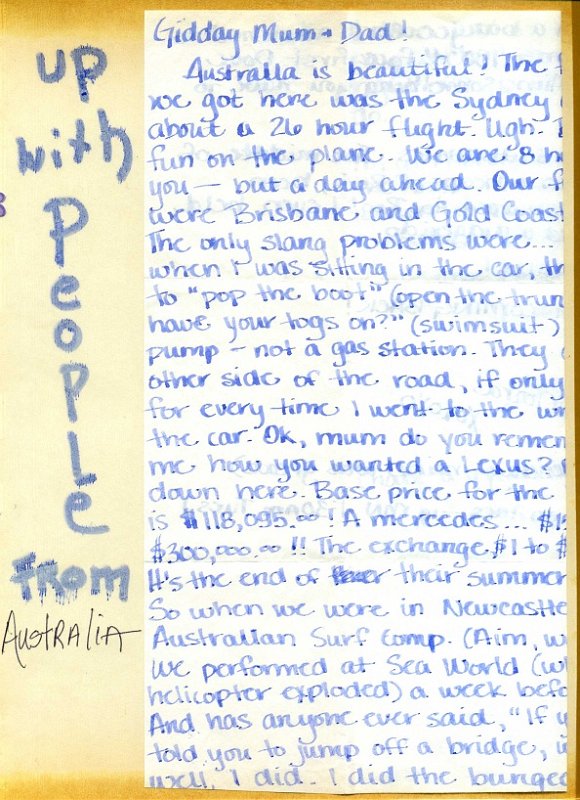 up
with
People
From
Australia
Gidday Mum + Dad!
Australia is beautiful! The
we got here was the Sydney
about a 26 hour flight. Ugh.
fun on the plane. We are 8 h
you — but a day ahead. Our f
were Brisbane and Gold Coast
The only slang problems were...
when I was sitting in the car, th
to "pop the boot" (open the trun
have your togs on?" (swimsuit)
pump – not a gas station. They
other side of the road, if only
for every time I went to the wr
the car. Ok, mum do you remem
me how you wanted a Lexus?
down here. Base price for the
is $118,095.00! A mercedes... $1
$300,000.00!! The exchange $1 to $
It's the end of their summer
So when we were in Newcastle
Australian Surf Comp. (Aim, w
we performed at Sea World (w
helicopter exploded) a week befo
And has anyone ever said, "If y
told you to jump off a bridge, w
well, I did. I did the bungee